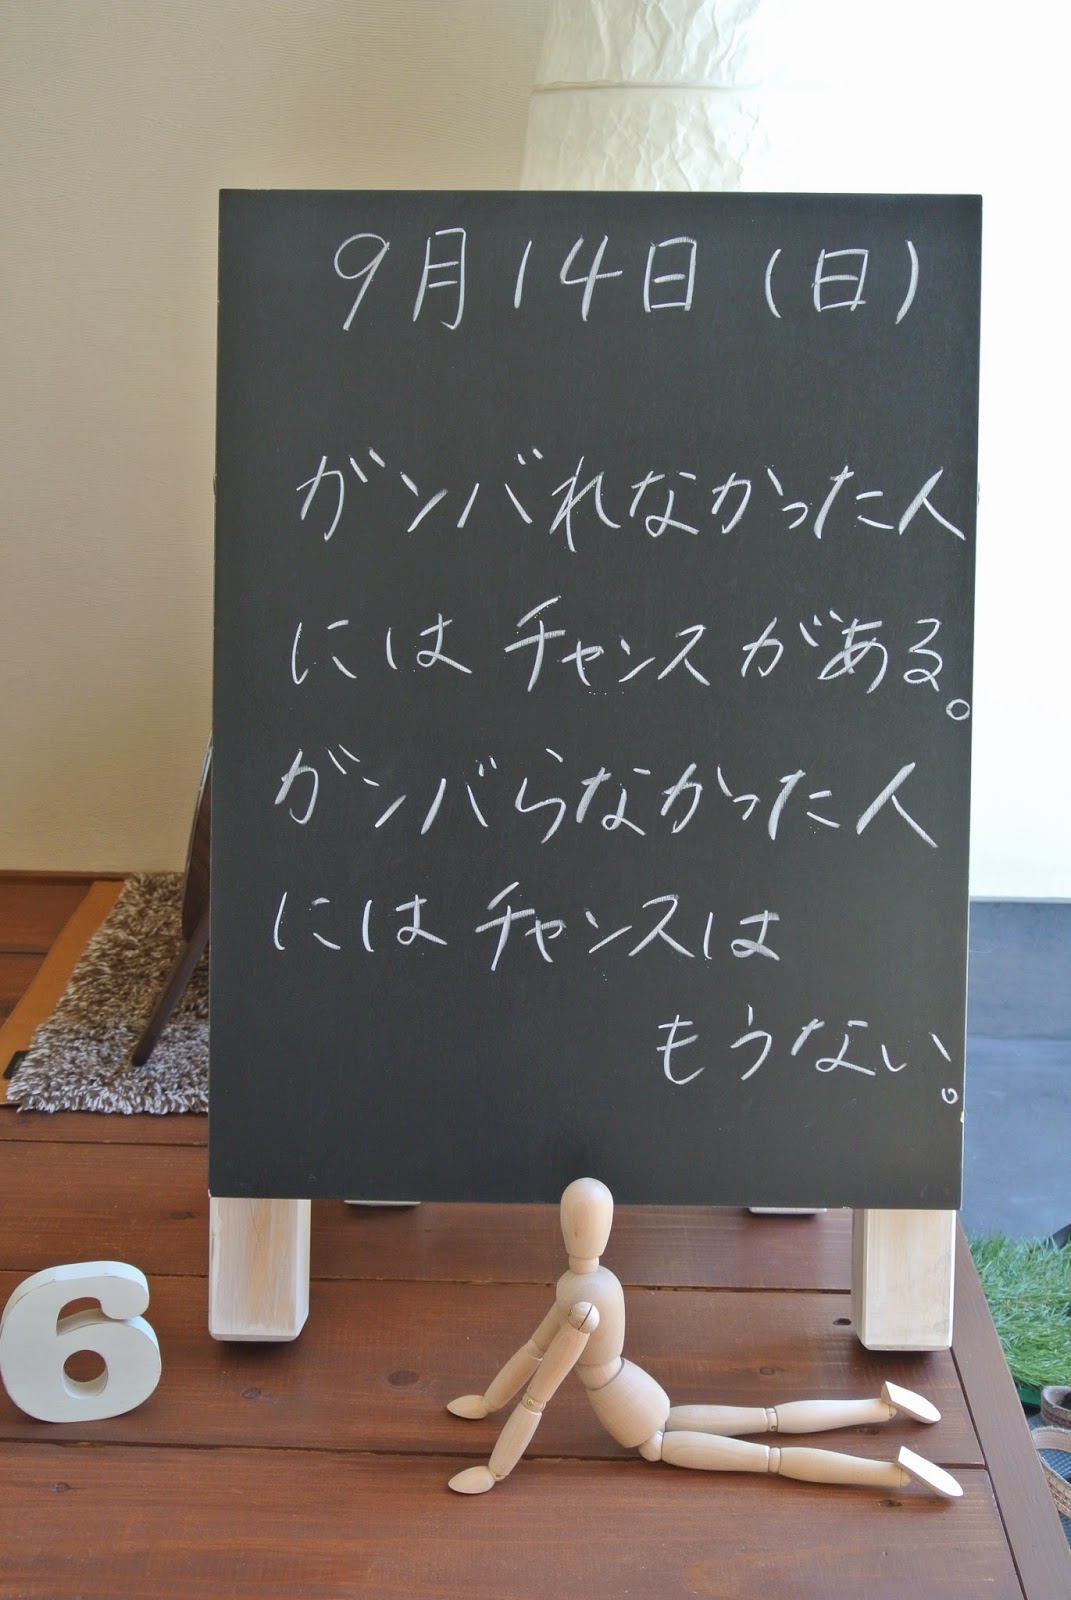 9月14日(日)
ガンバれなかった人
にはチャンスがある。
ガンバらなかった人
にはチャンスは
もうない。
6